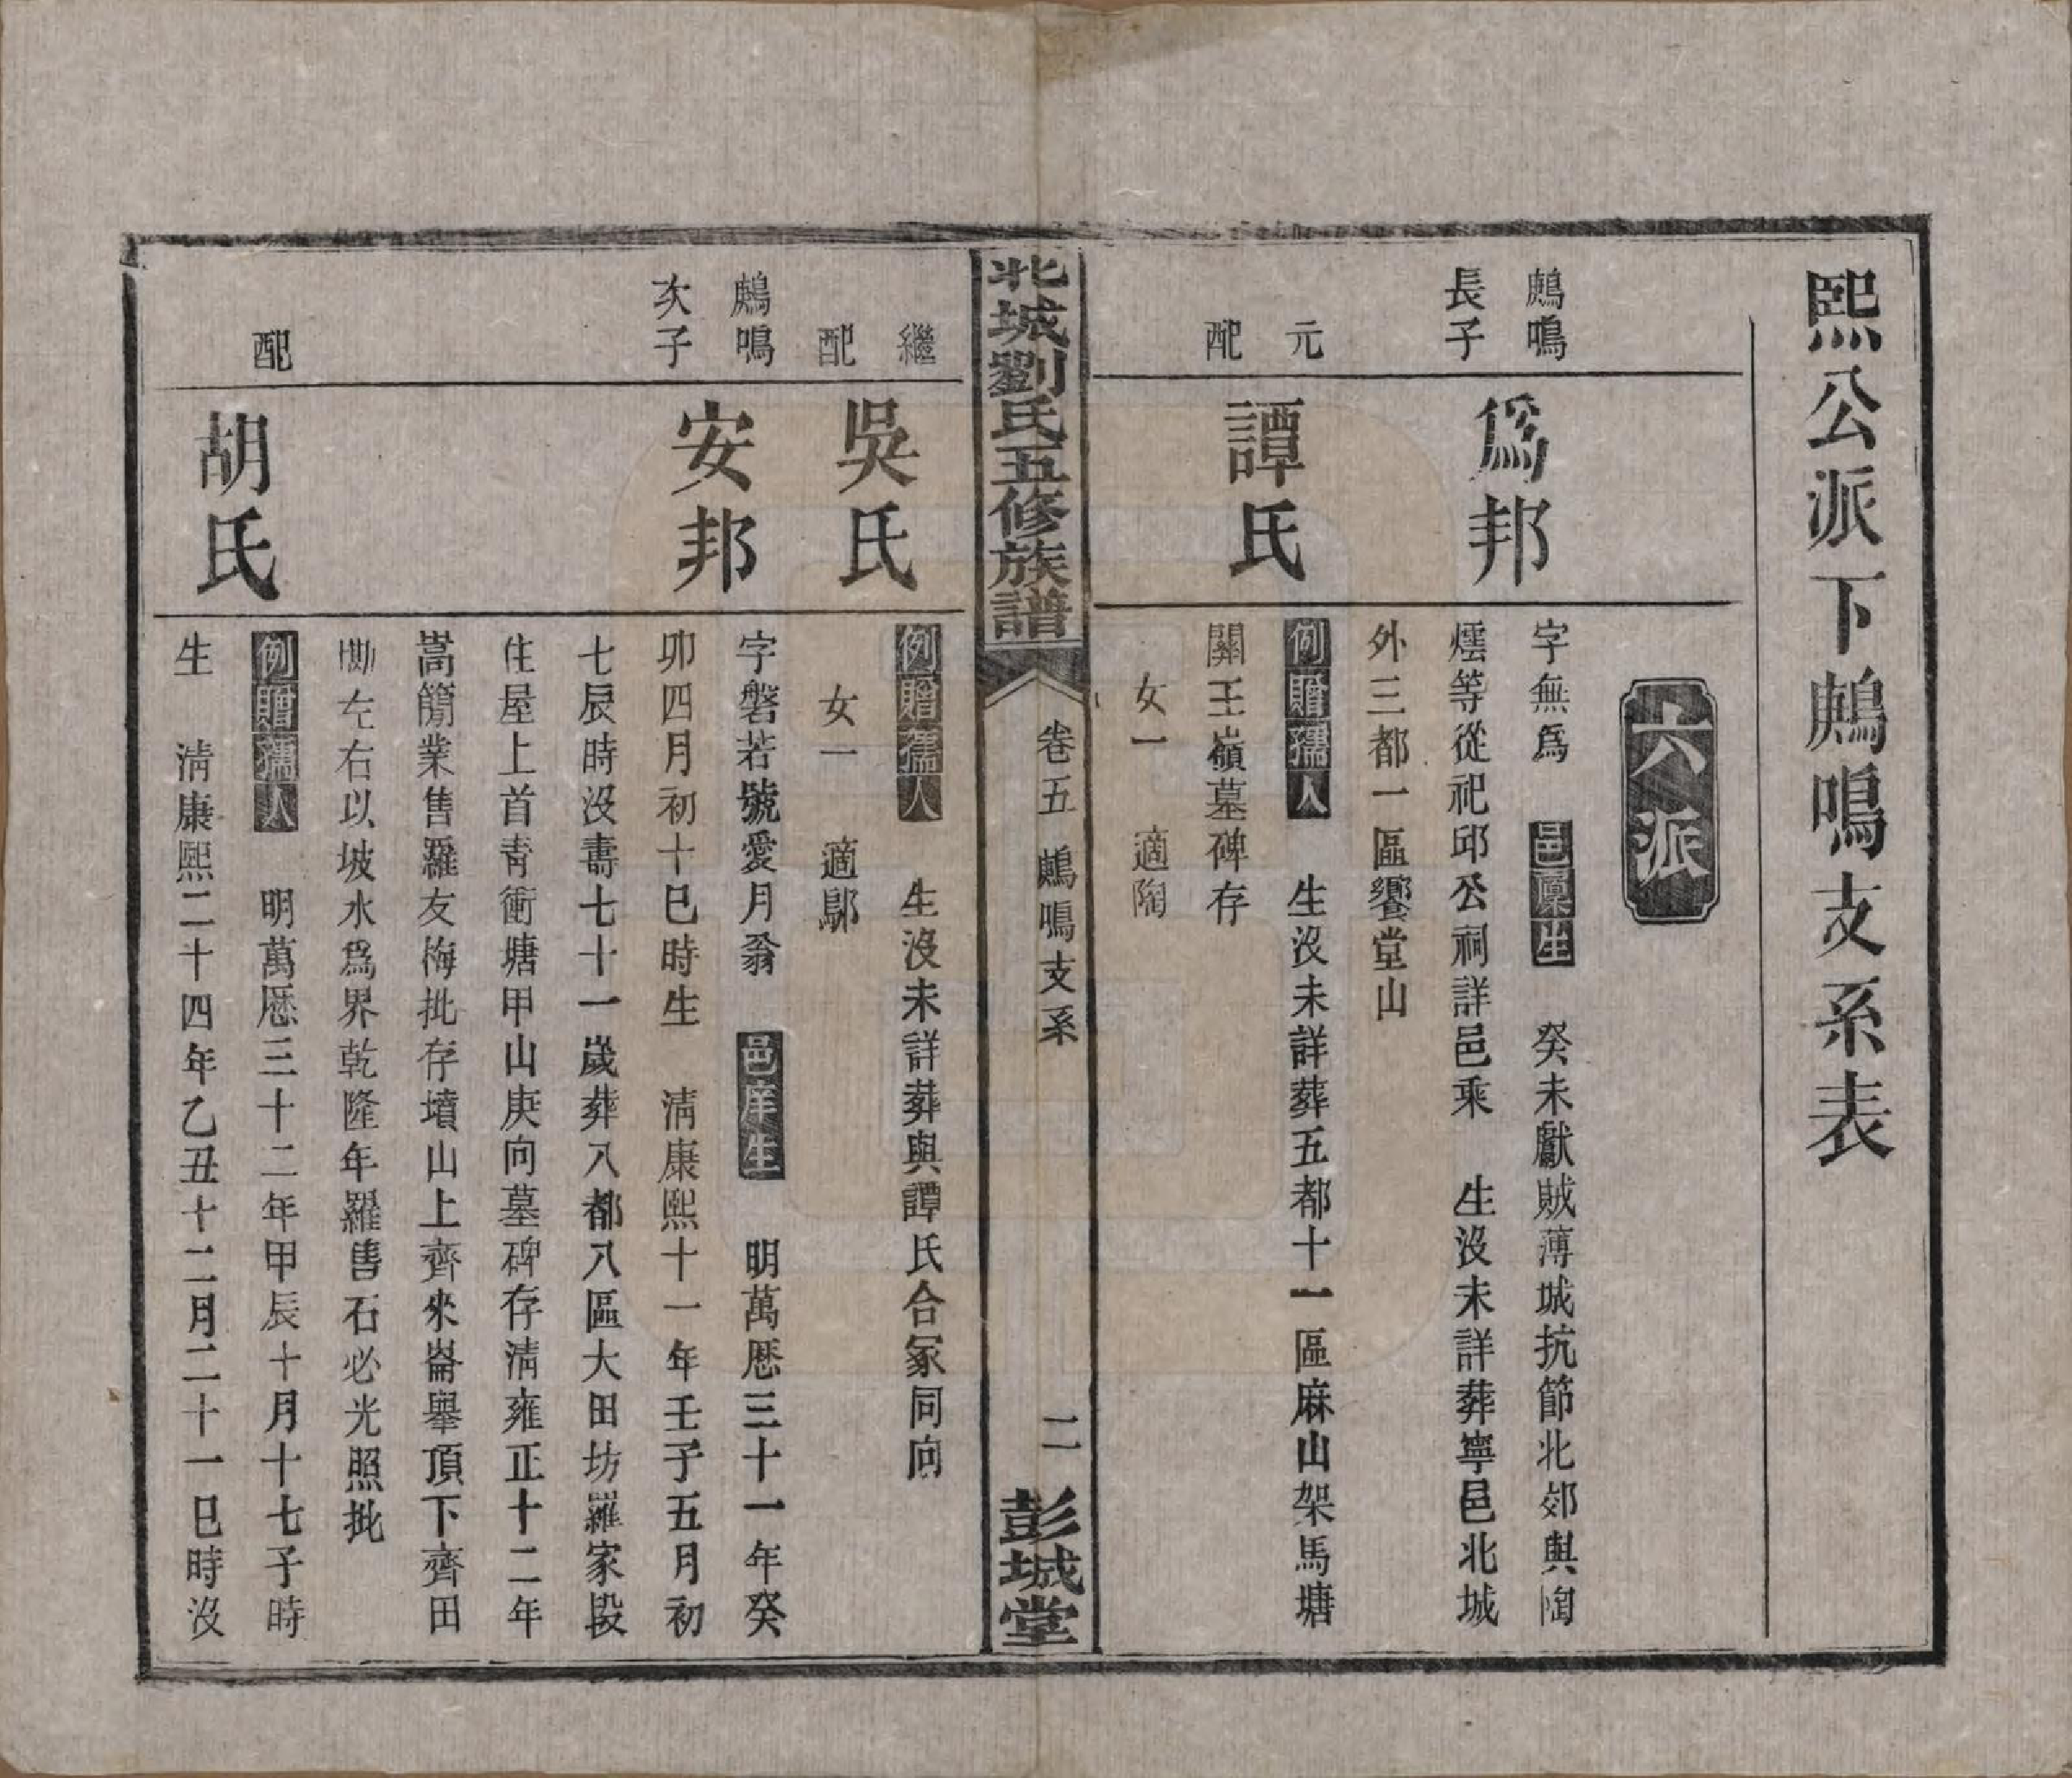 熙公派下鷓鳴支系表
六派
鷓鳴
長子
爲邦
字無爲　邑廩生　癸未獻賊薄城抗節北郊與陶
燝等從祀邱公祠詳邑乘　生沒未詳葬寧邑北城
外三都一區饗堂山
元
配
譚氏
例贈孺人　生沒未詳葬五都十一區麻山架馬塘
關王嶺墓碑存
女一　適陶
北城劉氏五修族譜
卷五　鷓鳴支系
二
彭城堂
繼
配
吳氏
例贈孺人　生沒未詳葬與譚氏合冢同向
女一　適鄔
鷓鳴
次子
安邦
字磐若號愛月翁　邑庠生　明萬厯三十一年癸
卯四月初十巳時生　淸康熙十一年壬子五月初
七辰時沒壽七十一歲葬八都八區大田坊羅家段
住屋上首靑衝塘甲山庚向墓碑存淸雍正十二年
嵩簡業售羅友梅批存墳山上齊來崙舉頂下齊田
坳左右以坡水爲界乾隆年羅售石必光照批
配
胡氏
例贈孺人　明萬厯三十二年甲辰十月十七子時
生　淸康熙二十四年乙丑十二月二十一巳時沒